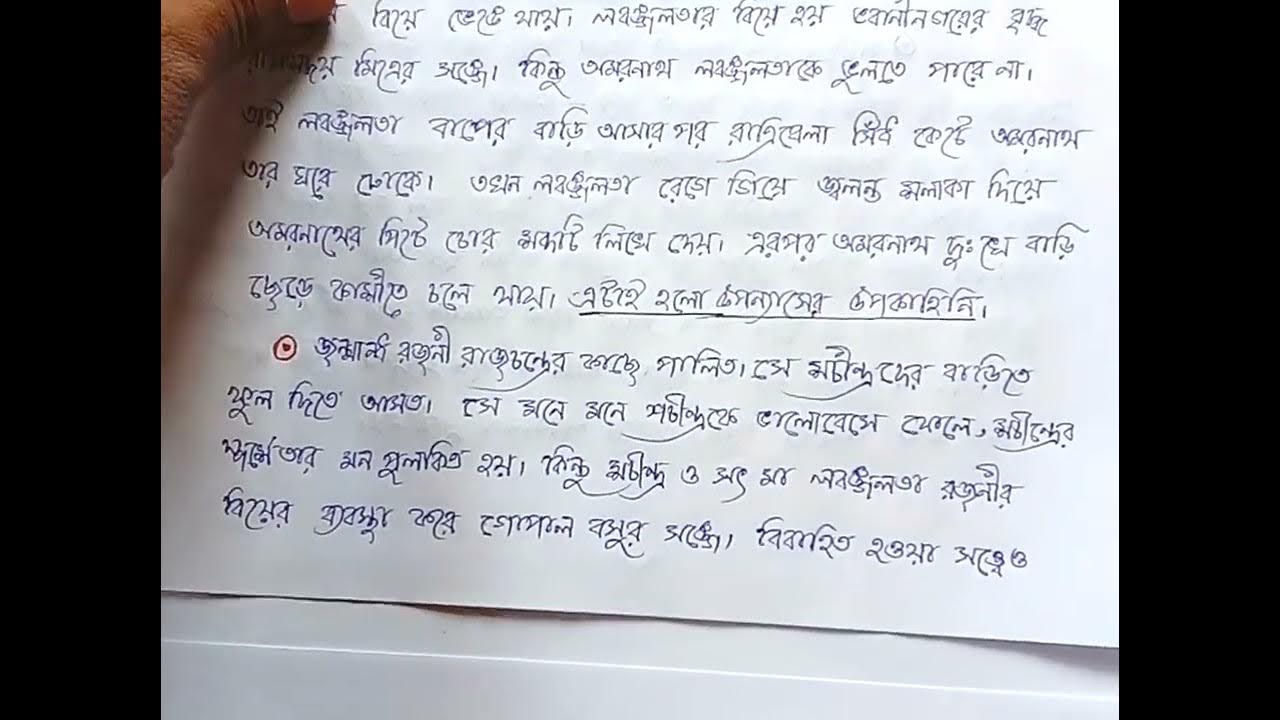 বিয়ে ভেঙে যায়। লবঙ্গলতার বিয়ে হয় ভবানীনগরের বৃদ্ধ
মিত্রের সঙ্গে। কিন্তু অমরনাথ লবঙ্গলতাকে ভুলতে পারে না।
তাই লবঙ্গলতা বাপের বাড়ি আসার পর রাত্রিবেলা সিঁধ কেটে অমরনাথ
তার ঘরে ঢোকে। তখন লবঙ্গলতা রেগে গিয়ে জ্বলন্ত শলাকা দিয়ে
অমরনাথের পিঠে চোর শব্দটি লিখে দেয়। এরপর অমরনাথ দুঃখে বাড়ি
ছেড়ে কাশীতে চলে যায়। এটাই হলো উপন্যাসের উপকাহিনি।
জন্মান্ধ রজনী রাজচন্দ্রের কাছে পালিত। সে শচীন্দ্রদের বাড়িতে
ফুল দিতে আসত। সে মনে মনে শচীন্দ্রকে ভালোবেসে ফেলে, শচীন্দ্রের
স্পর্শে তার মন পুলকিত হয়। কিন্তু শচীন্দ্র ও সৎ মা লবঙ্গলতা রজনীর
বিয়ের ব্যবস্থা করে গোপাল বসুর সঙ্গে। বিবাহিত হওয়া সত্ত্বেও